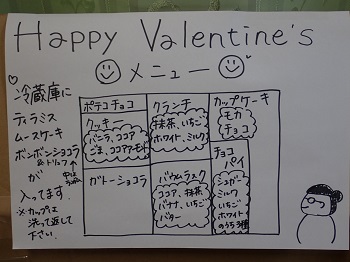 Happy Valentine's
メニュー
冷蔵庫に
ティラミス
ムースケーキ
ボンボンショコラ
&トリュフ
が
入ってます。
※カップは
洗って返して
下さい。
ポテコチョコ
クッキー
バニラ、ココア
ごま、ココアアーモンド
ガトーショコラ
クランチ
抹茶、いちご
ホワイト、ミルク
バウムラスク
ココア、抹茶
バナナ、いちご
バター
カップケーキ
モカ
チョコ
チョコ
パイ
シュガー
ミルク
いちご
ホワイト
のうち3種